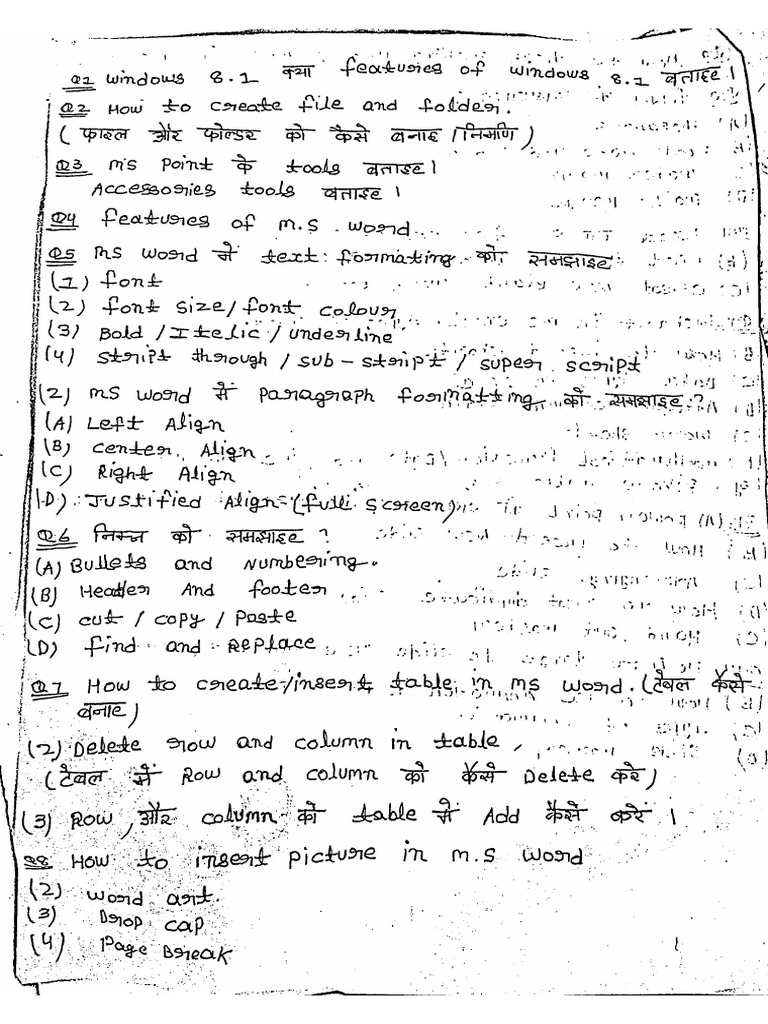 Q1 Windows 8.1 क्या features of windows 8.1 बताइए।
Q2 How to create file and folder.
( फाइल और फोल्डर को कैसे बनाए / निर्माण )
Q3 MS Point के tools बताइए।
Accessories tools बताइए।
Q4 features of M.S word
Q5 MS word में text formating को समझाइए
(1) font
(2) font size/font colour
(3) Bold / Itelic / underline
(4) stript through / sub-stript / super script
(2) MS word में Paragraph formatting को समझाइए ?
(A) Left Align
(B) Center Align
(C) Right Align
(D) Justified Align (full screen)
Q6 निम्न को समझाइए ?
(A) Bullets and Numbering.
(B) Header And footer
(C) cut / copy / Paste
(D) find and Replace
Q7 How to create/insert table in MS word. (टेबल कैसे
बनाए)
(2) Delete row and column in table
(टेबल में Row and column को कैसे Delete करे)
(3) Row और column को table में Add कैसे करें।
Q8 How to insert picture in M.S word
(2) word art.
(3) Drop cap
(4) Page Break